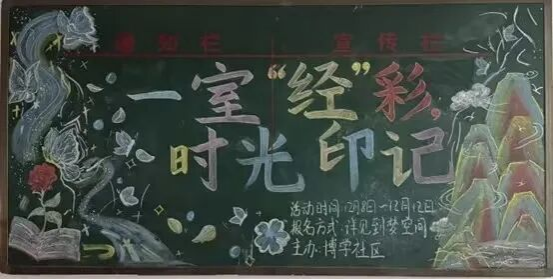 通知栏
宣传栏
一室“经”彩，
时光印记
活动时间:12月8日-12月12日
报名方式:详见到梦空间
主办:博学社区